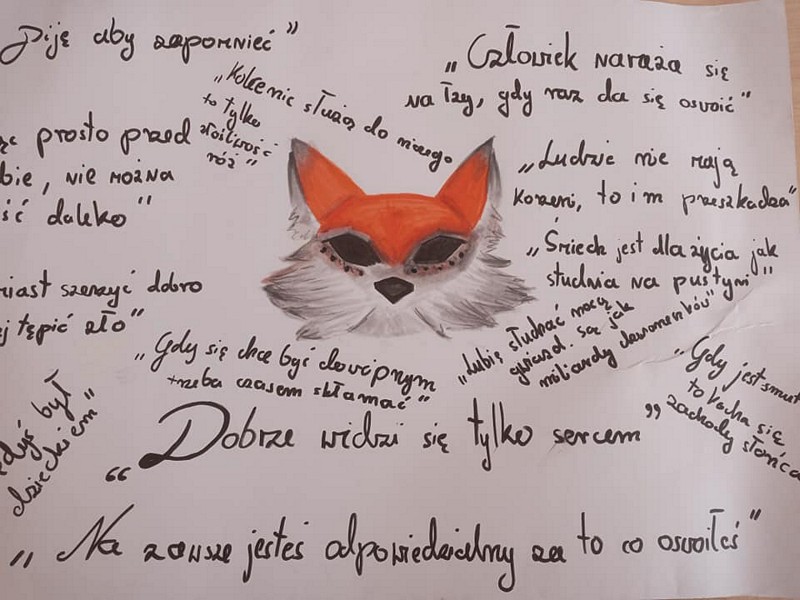 Piję aby zapomnieć"
„Kolce nic służą do niczego
to tylko
złośliwość
róż"
„Człowiek naraża się
na łzy, gdy raz da się oswoić"
prosto przed
bie, nie można
ść daleko"
„Ludzie nie mają
korzeni, to im przeszkadza"
„Śmiech jest dla życia jak
studnia na pustyni"
miast szerzyć dobro
j tępić zło"
„Gdy się chce być dowcipnym
trzeba czasem skłamać"
„Lubię słuchać nocą
gwiazd. Są jak
miliardy dzwoneczków"
„Gdy jest smut
to kocha się
zachody słońca
edyś był
dzieckiem"
“Dobrze widzi się tylko sercem”
„Na zawsze jesteś odpowiedzialny za to co oswoiłeś"